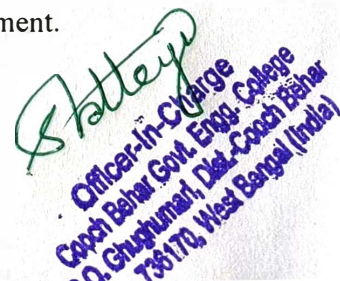 ment.
Officer-In-Charge
Cooch Behar Govt. Engg. College
P.O. Ghughumari, Dist.-Cooch Behar
736170, West Bengal (India)